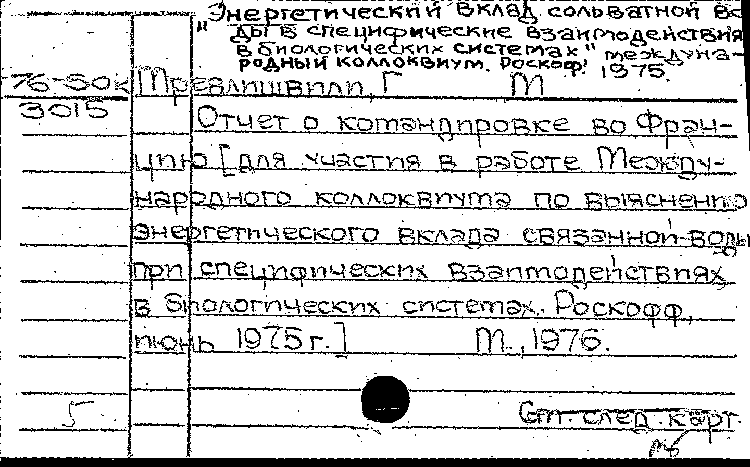 "Энергетический вклад сольватной во-
ды в специфические взаимодействия
в биологических системах" междуна-
родный коллоквиум. Роскоф. 1975.
76-50к Мревлишвили, Г М
3015
Отчет о командировке во Фран-
цию [для участия в работе Между-
народного коллоквиума по выяснению
энергетического вклада связанной воды
при специфических взаимодействиях
в биологических системах. Роскофф,
июнь 1975 г.] М., 1976.
5 См. след. карт.